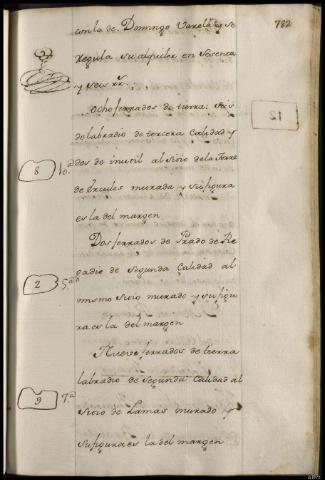 782
con la de Domingo Varela, y se
Regula su alquiler en Sesenta
y seis rr.
Ocho ferrados de tierra: Seis
de labradio de tercera Calidad y
8 10.
dos de inutil al Sitio de la Torre
de Ercules murada y su figura
es la del margen
Dos ferrados de Prado de Re
gadio de Segunda Calidad al
2 5.ª
mismo Sitio murado y su figu
ra es la del margen
Nueve ferrados de tierra
labradio de Segunda Calidad al
9 7.ª
Sitio de Lamas murado y
su figura es la del margen
12